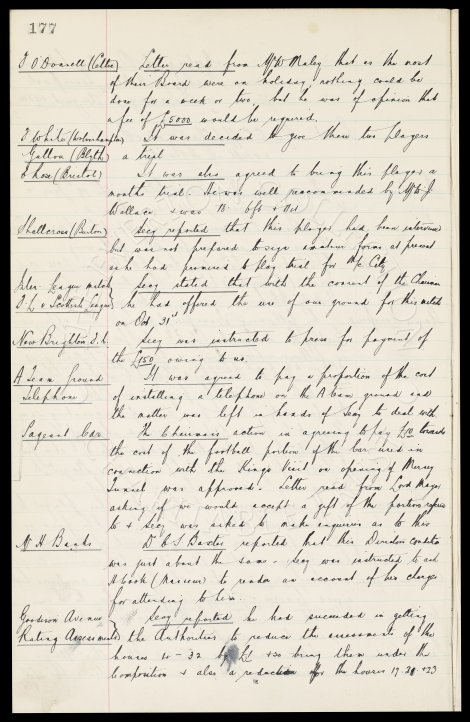 177
F O'Donnell (Celtic) Letter read from Mr W Maley that as the most
of their Board were on holiday, nothing could be
done for a week or two, but he was of opinion that
a fee of £5000 would be required.
White (Wolverhampton) It was decided to give these two players
(Blyth) a trial
Rose (Bristol) It was also agreed to bring this player a
months trial. He was well recommended by Mr
Wallace, & was 6ft &
Shallcross (Buxton) Secy reported that this player had been interviewed
but was not prepared to sign amateur forms at present
as he had promised to play trial for M/c City
Inter League match Secy stated that with the consent of the Chairman
F. L. v Scottish League he had offered the use of our ground for this match
on Oct 31st
New Brighton F. C. Secy was instructed to press for payment of
the £150 owing to us.
A Team Ground It was agreed to pay a proportion of the cost
Telephone of installing a telephone on the A team ground and
the matter was left in hands of Secy to deal with
Pageant Car The Chairmans action in agreeing to pay £50 towards
the cost of the football portion of the car used in
connection with the Kings Visit on opening of Mersey
Tunnel was approved. Letter read from Lord Mayor
asking if we would accept a gift of the portion referred
to & Secy was asked to make enquiries as to this
Mr H Banks Dr C S Baxter reported that this Directors condition
was just about the same. Secy was instructed to ask
H Cook (Masseur) to render an account of his charges
for attending to him.
Goodison Avenue Secy reported he had succeeded in getting
Rating Assessments the Authorities to reduce the assessments of the
houses 10 - 32 by £1 & so bring them under the
Composition & also a reduction for the houses 17. 21 & 23